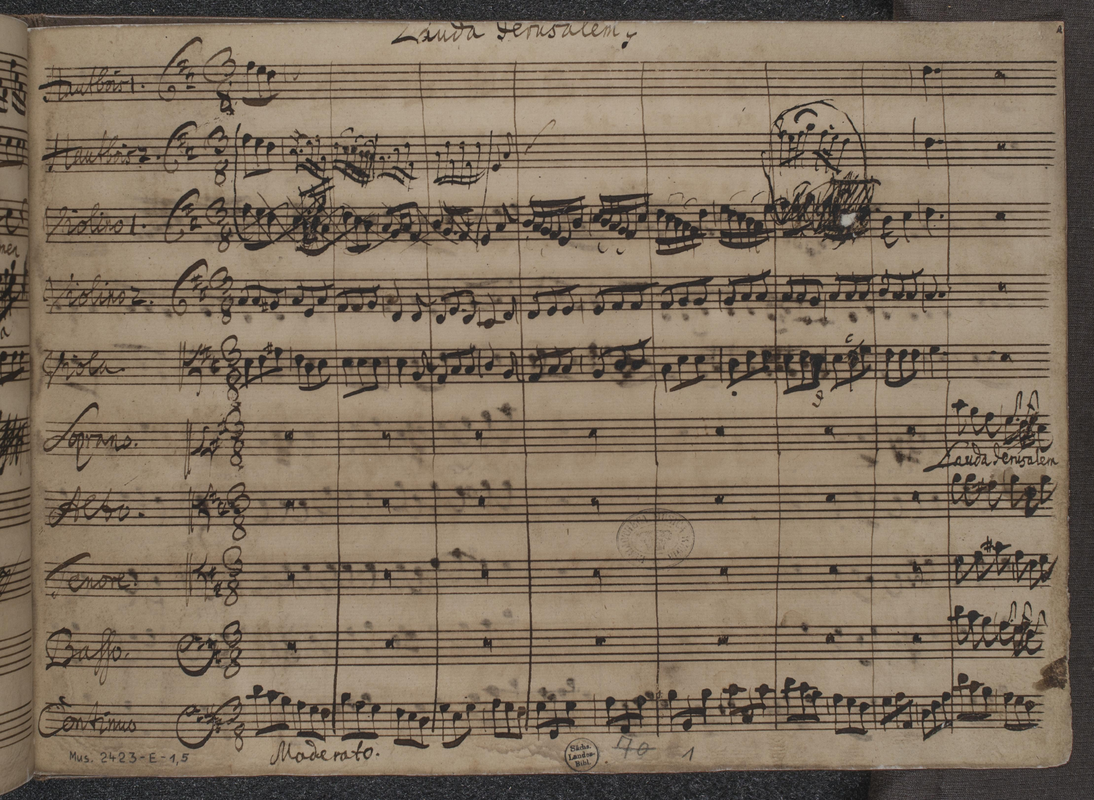 Lauda Jerusalem.
Hautbois 1.
Hautbois 2.
Violino 1.
Violino 2.
Viola
Soprano.
Lauda Jerusalem
Alto.
Tenore.
Basso.
Continuo
Moderato.
Mus. 2423-E-1,5
Sächs.
Landes-
Bibl.
1